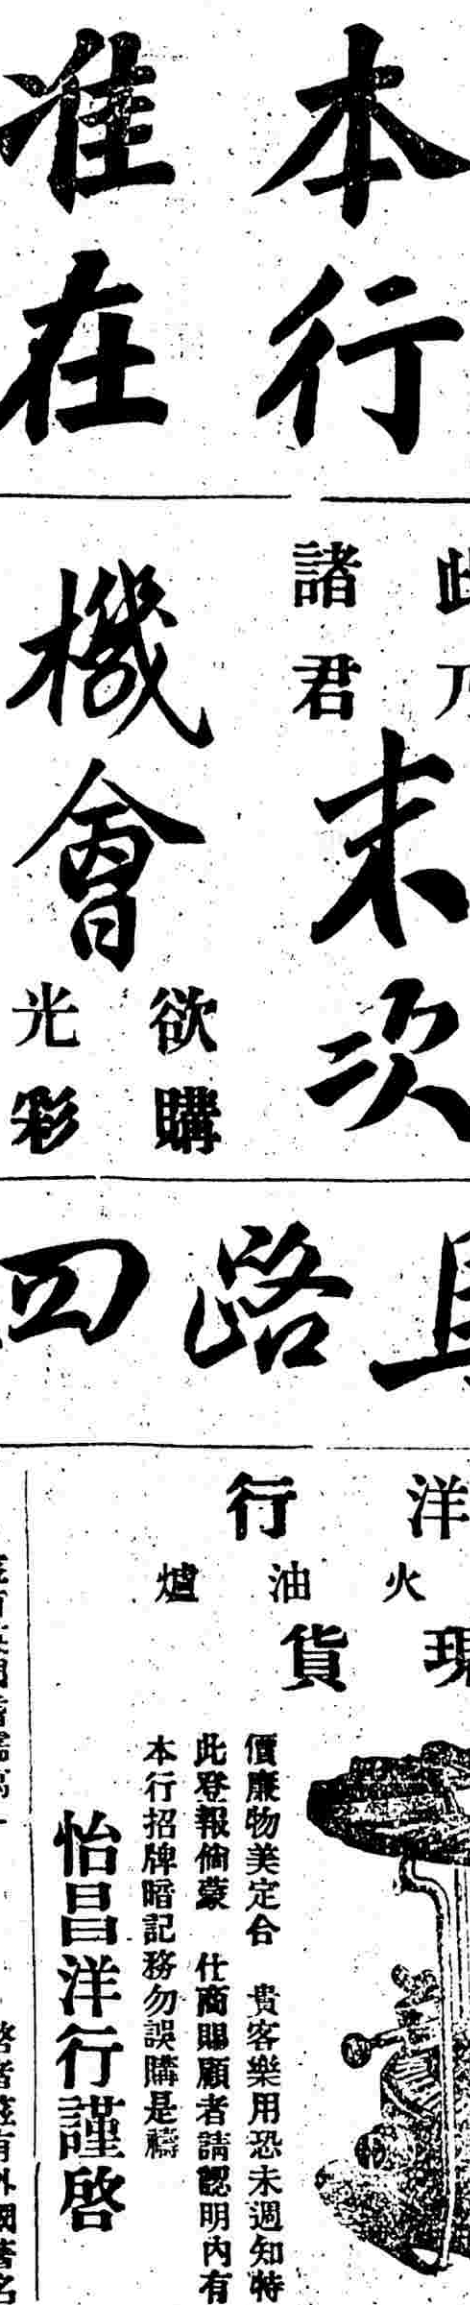 本行
准在
此乃
末次
諸君
機會
欲購
光彩
路四
洋行
火油爐
現貨
價廉物美定合　貴客樂用恐未週知特
此登報倘蒙　仕商賜顧者請認明內有
本行招牌暗記務勿誤購是禱
怡昌洋行謹啓